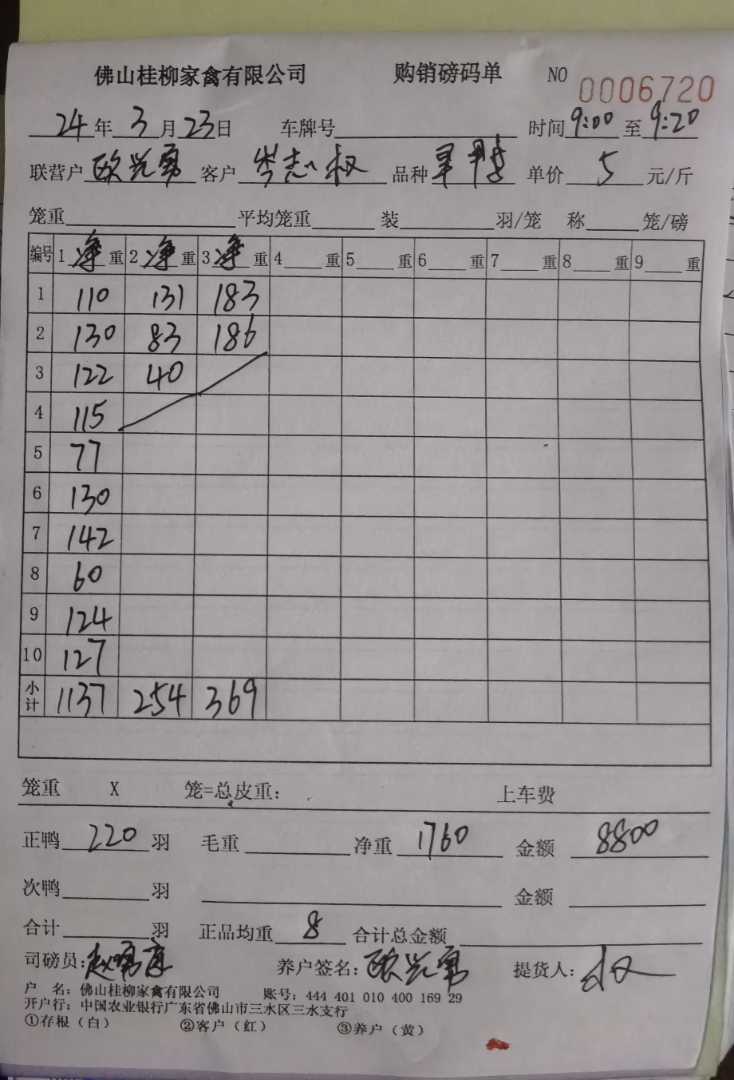 佛山桂柳家禽有限公司 购销磅码单 NO 0006720
24年3月23日 车牌号 时间9:00至9:20
联营户 客户 品种 单价5元/斤
笼重 平均笼重 装 羽/笼 称 笼/磅
编号 1净重 2净重 3净重 4重 5重 6重 7重 8重 9重
1 110 131 183
2 130 83 186
3 122 40
4 115
5 77
6 130
7 142
8 60
9 124
10 127
小计 1137 254 369
笼重 X 笼=总皮重: 上车费
正鸭220羽 毛重 净重1760 金额8800
次鸭 羽 金额
合计 羽 正品均重8 合计总金额
司磅员: 养户签名: 提货人:
户 名: 佛山桂柳家禽有限公司 账号: 444 401 010 400 169 29
开户行: 中国农业银行广东省佛山市三水区三水支行
①存根(白) ②客户(红) ③养户(黄)